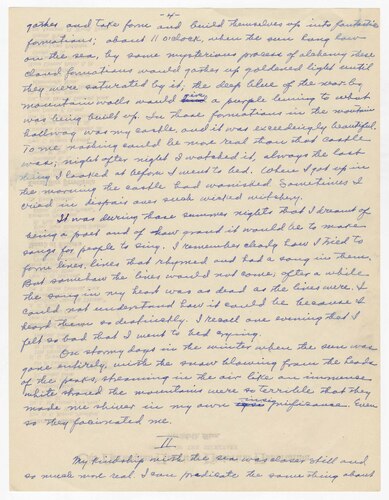 - 4 -
gather and take form and build themselves up into fantastic
formations; about 11 o'clock, when the sun hung low
on the sea, by some mysterious process of alchemy these
cloud formations would gather up goldened light until
they were saturated by it, the deep blue of the nearby
mountain walls would give a purple lining to what
was being built up. In those formations in the mountain
hallway was my castle, and it was exceedingly beautiful.
To me nothing could be more real than that castle
was; night after night I watched it, always the last
thing I looked at before I went to bed. When I got up in
the morning the castle had vanished. Sometimes I
cried in despair over such wicked witchery.
It was during those summer nights that I dreamt of
being a poet and of how grand it would be to make
songs for people to sing. I remember clearly how I tried to
form lines, lines that rhymed and had a song in them.
But somehow the lines would not come; after a while
the song in my heart was as dead as the lines were. I
could not understand how it could be because I
heard them so distinctly. I recall one evening that I
felt so bad that I went to bed crying.
On stormy days in the winter when the sun was
gone entirely, with the snow blowing from the heads
of the peaks, streaming in the air like an immense
white shroud the mountains were so terrible that they
made me shiver in my own insignificance. Even
so they fascinated me.
II
My kindship with the sea was closer still and
so much more real. I can predicate the same thing about